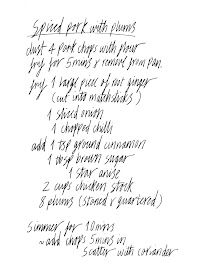 Spiced pork with plums
dust 4 pork chops with flour
fry for 5 mins & remove from pan.
fry 1 large piece of root ginger
(cut into matchsticks)
1 sliced onion
1 chopped chilli
add 1 tsp ground cinnamon
1 tbsp brown sugar
1 star anise
2 cups chicken stock
8 plums (stoned & quartered)
Simmer for 10 mins
~ add chops 5 mins in
Scatter with coriander